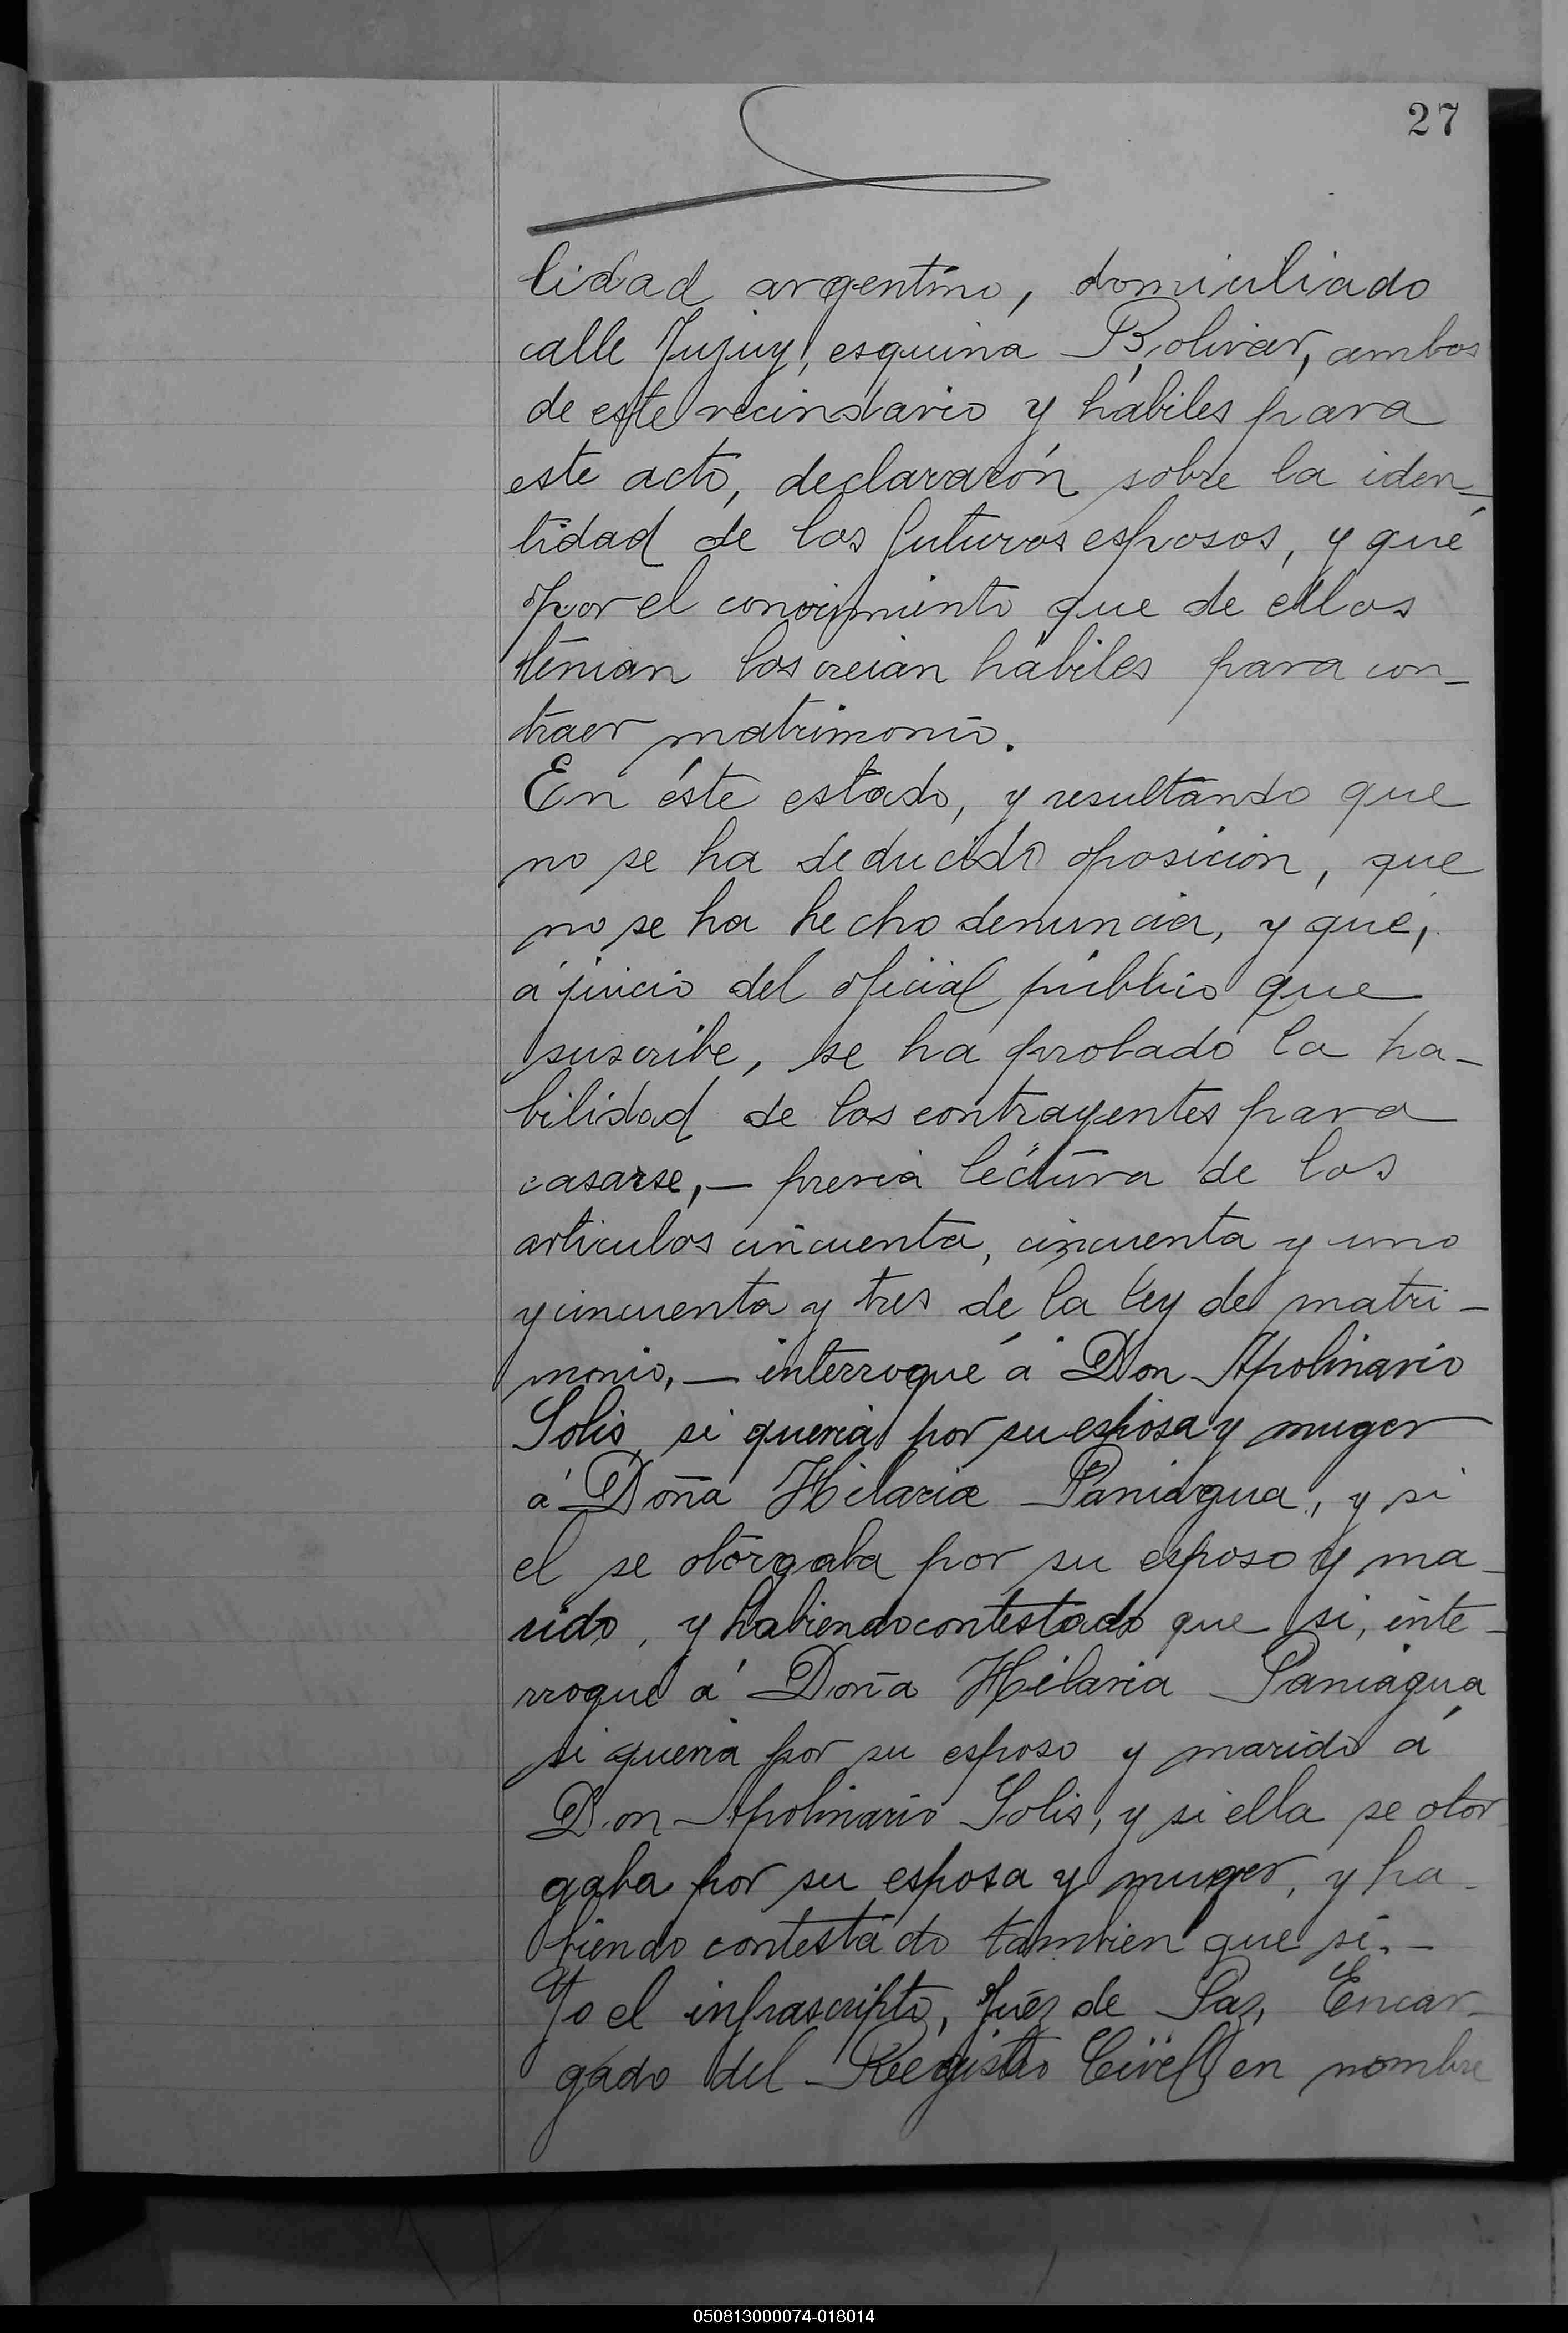 27
lidad argentino, domiciliado
calle Jujuy, esquina Bolivar, ambos
de este vecindario y hábiles para
este acto, declararón sobre la iden-
tidad de los futuros esposos, y qué
por el conocimiento que de ellos
tenian los creian hábiles para con-
traer matrimonio.
En éste estado, y resultando que
no se ha deducido oposicion, que
no se ha hecho denuncia, y que,
á juicio del oficial público que
suscribe, se ha probado la ha-
bilidad de los contrayentes para
casarse,— previa lectura de los
articulos cincuenta, cincuenta y uno
y cincuenta y tres de la ley de matri-
monio,— interrogué á Don Apolinario
Solis, si queria por su esposa y muger
á Doña Hilaria Paniagua, y si
el se otorgaba por su esposo y ma-
rido, y habiendo contestado que si, inte-
rrogué á Doña Hilaria Paniagua
si queria por su esposo y marido á
Don Apolinario Solis, y si ella se otor
gaba por su esposa y muger, y ha-
biendo contestado tambien que si.—
Yo el infrascripto, Juéz de Paz, Encar-
gado del Registro Civil, en nombre
050813000074-018014